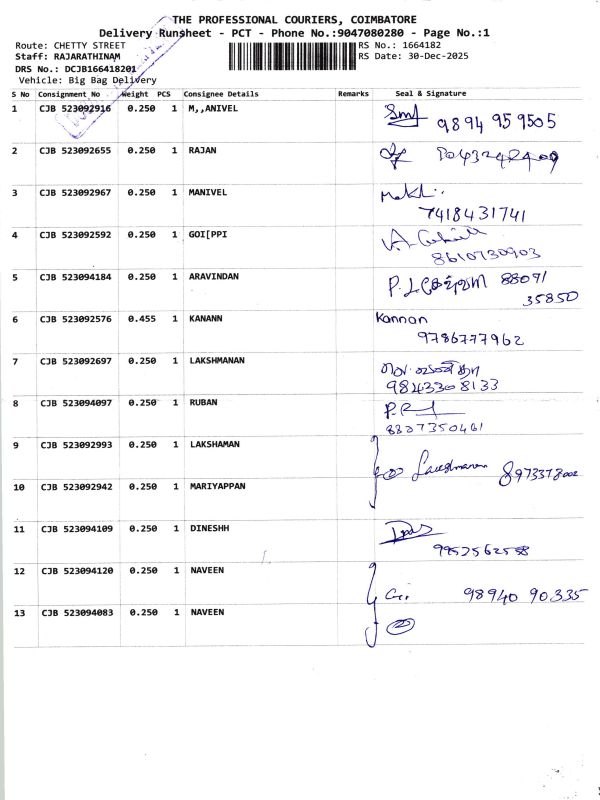 THE PROFESSIONAL COURIERS, COIMBATORE
Delivery Runsheet - PCT - Phone No.:9047080280 - Page No.:1
Route: CHETTY STREET RS No.: 1664182
Staff: RAJARATHINAM RS Date: 30-Dec-2025
DRS No.: DCJB166418201
Vehicle: Big Bag Delivery
S No Consignment No Weight PCS Consignee Details Remarks Seal & Signature
1 CJB 523092916 0.250 1 M,,ANIVEL
9894 95 9505
2 CJB 523092655 0.250 1 RAJAN
3 CJB 523092967 0.250 1 MANIVEL
7418431741
4 CJB 523092592 0.250 1 GOI[PPI
8610730903
5 CJB 523094184 0.250 1 ARAVINDAN 88091
35850
6 CJB 523092576 0.455 1 KANANN Kannan
9786777962
7 CJB 523092697 0.250 1 LAKSHMANAN
9843308133
8 CJB 523094097 0.250 1 RUBAN
8807350461
9 CJB 523092993 0.250 1 LAKSHAMAN
10 CJB 523092942 0.250 1 MARIYAPPAN
11 CJB 523094109 0.250 1 DINESHH
9952562558
12 CJB 523094120 0.250 1 NAVEEN
98940 90335
13 CJB 523094083 0.250 1 NAVEEN
2